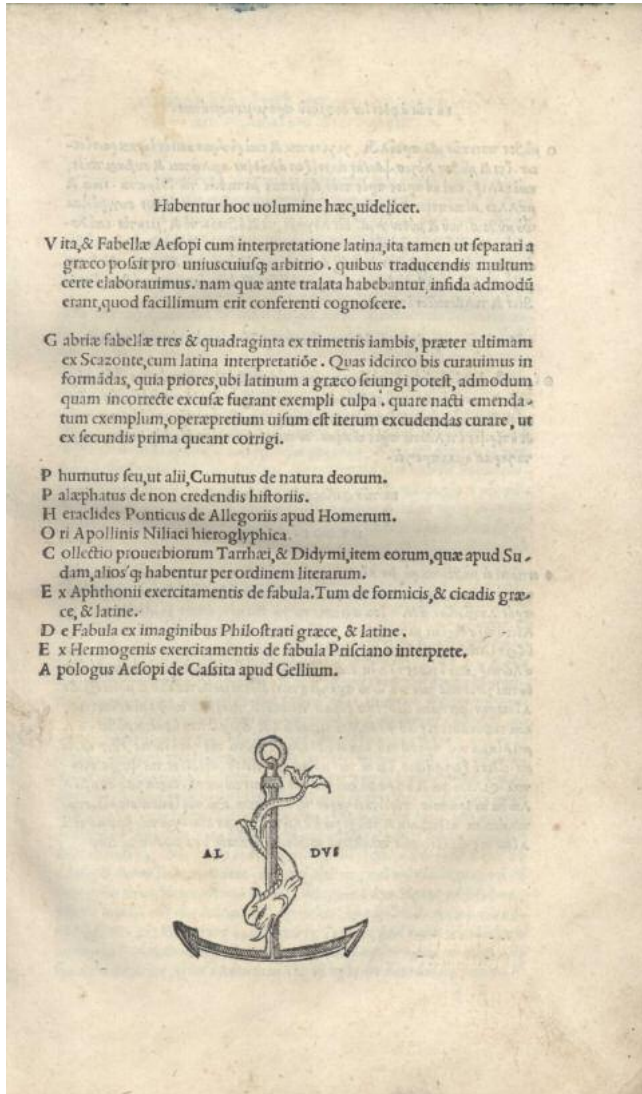 Habentur hoc uolumine hæc, uidelicet.
V ita, & Fabellæ Aesopi cum interpretatione latina, ita tamen ut separari a
græco possit pro uniuscuiusq; arbitrio. quibus traducendis multum
certe elaborauimus. nam quæ ante tralata habebantur, infida admodū
erant, quod facillimum erit conferenti cognoscere.
G abriæ fabellæ tres & quadraginta ex trimetris iambis, præter ultimam
ex Scazonte, cum latina interpretatiōe. Quas idcirco bis curauimus in
formādas, quia priores, ubi latinum a græco seiungi potest, admodum
quam incorrecte excusæ fuerant exempli culpa. quare nacti emenda-
tum exemplum, operæpretium uisum est iterum excudendas curare, ut
ex secundis prima queant corrigi.
P hurnutus seu, ut alii, Curnutus de natura deorum.
P alæphatus de non credendis historiis.
H eraclides Ponticus de Allegoriis apud Homerum.
O ri Apollinis Niliaci hieroglyphica.
C ollectio prouerbiorum Tarrhæi, & Didymi, item eorum, quæ apud Su-
dam, alios'q; habentur per ordinem literarum.
E x Aphthonii exercitamentis de fabula. Tum de formicis, & cicadis græ-
ce, & latine.
D e Fabula ex imaginibus Philostrati græce, & latine.
E x Hermogenis exercitamentis de fabula Prisciano interprete.
A pologus Aesopi de Cassita apud Gellium.
AL DVS